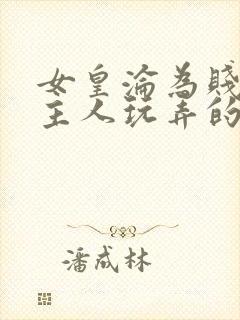 女皇淪為賤
主人玩弄的
潘成林